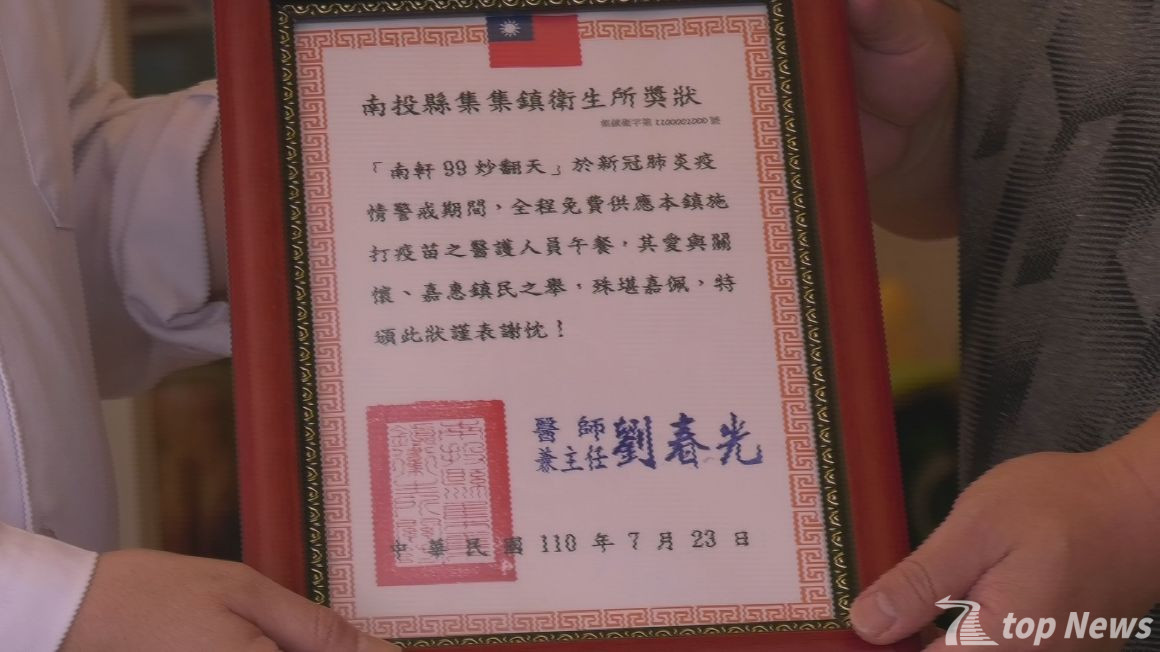 南投縣集集鎮衛生所獎狀
集鎮衛字第 1100001000 號
「南軒 99 炒翻天」於新冠肺炎疫
情警戒期間，全程免費供應本鎮施
打疫苗之醫護人員午餐，其愛與關
懷、嘉惠鎮民之舉，殊堪嘉佩，特
頒此狀謹表謝忱！
醫師
兼主任 劉春光
中華民國 110 年 7 月 23 日
top News